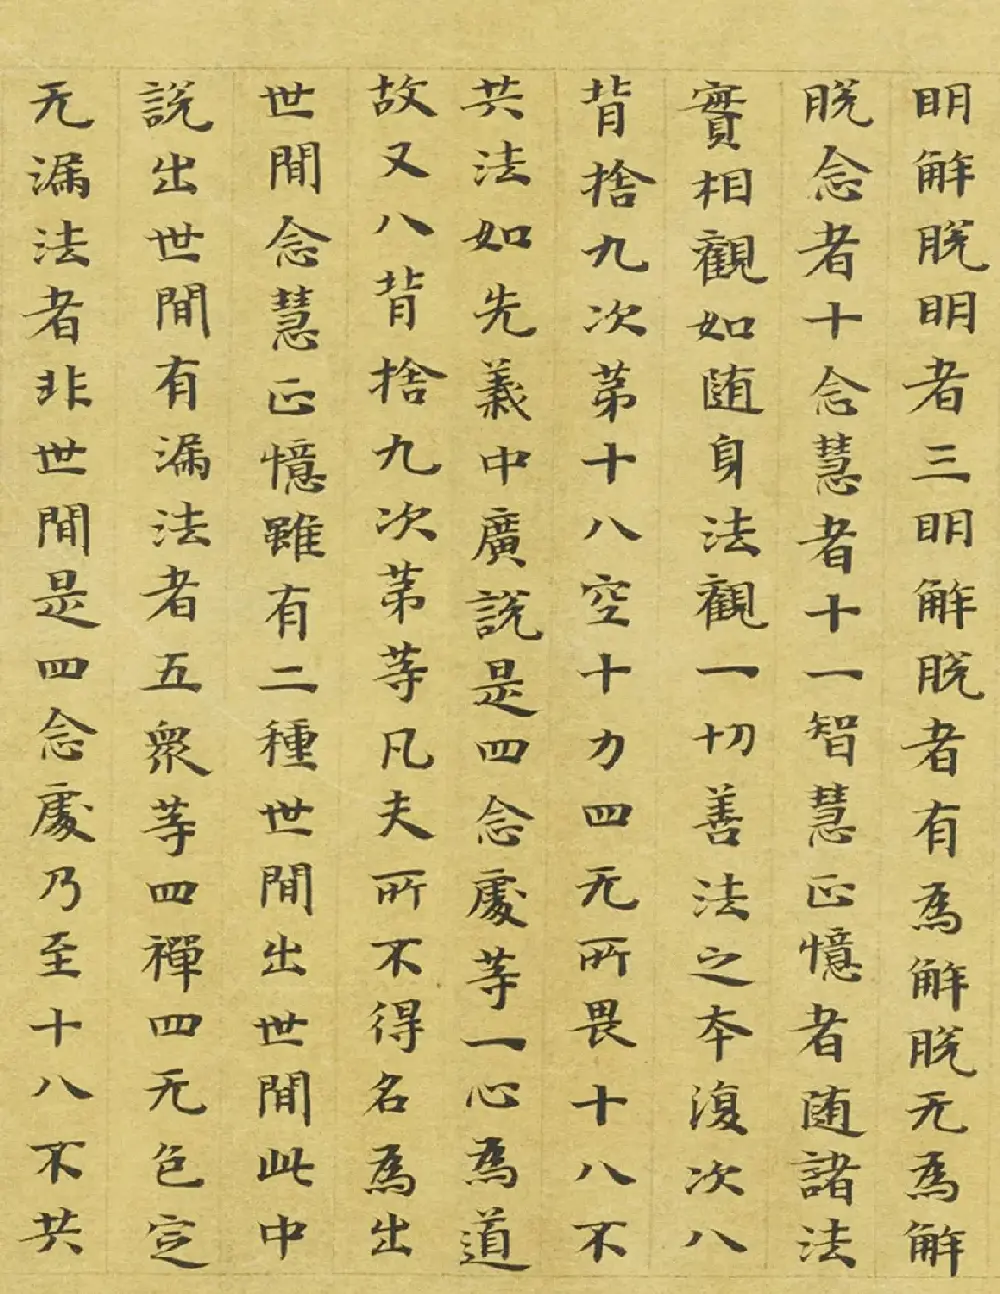 明解脱明者三明解脱者有為解脱无為解
脱念者十念慧者十一智慧正憶者随諸法
實相觀如随身法觀一切善法之本復次八
背捨九次第十八空十力四无所畏十八不
共法如先義中廣説是四念處等一心為道
故又八背捨九次第等凡夫所不得名為出
世間念慧正憶雖有二種世間出世間此中
説出世間有漏法者五衆等四禪四无色定
无漏法者非世間是四念處乃至十八不共